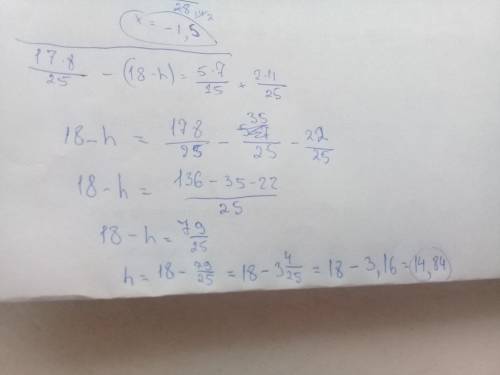 28
x = -1,5
17·8/25 - (18-h) = 5·7/25 + 2·11/25
18-h = 178/25 - 35/25 - 22/25
18-h = 136-35-22/25
18-h = 79/25
h = 18 - 79/25 = 18 - 3 4/25 = 18 - 3,16 = 14,84